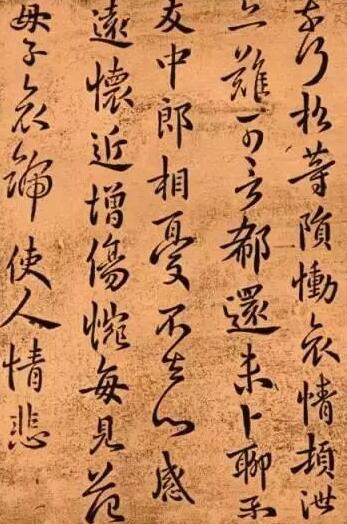 松等隕慟哀情頓泄
亡離可言郗還未卜聊示
友中郎相憂不去心感
遠懷近增傷惋每見范
母子哀號使人情悲